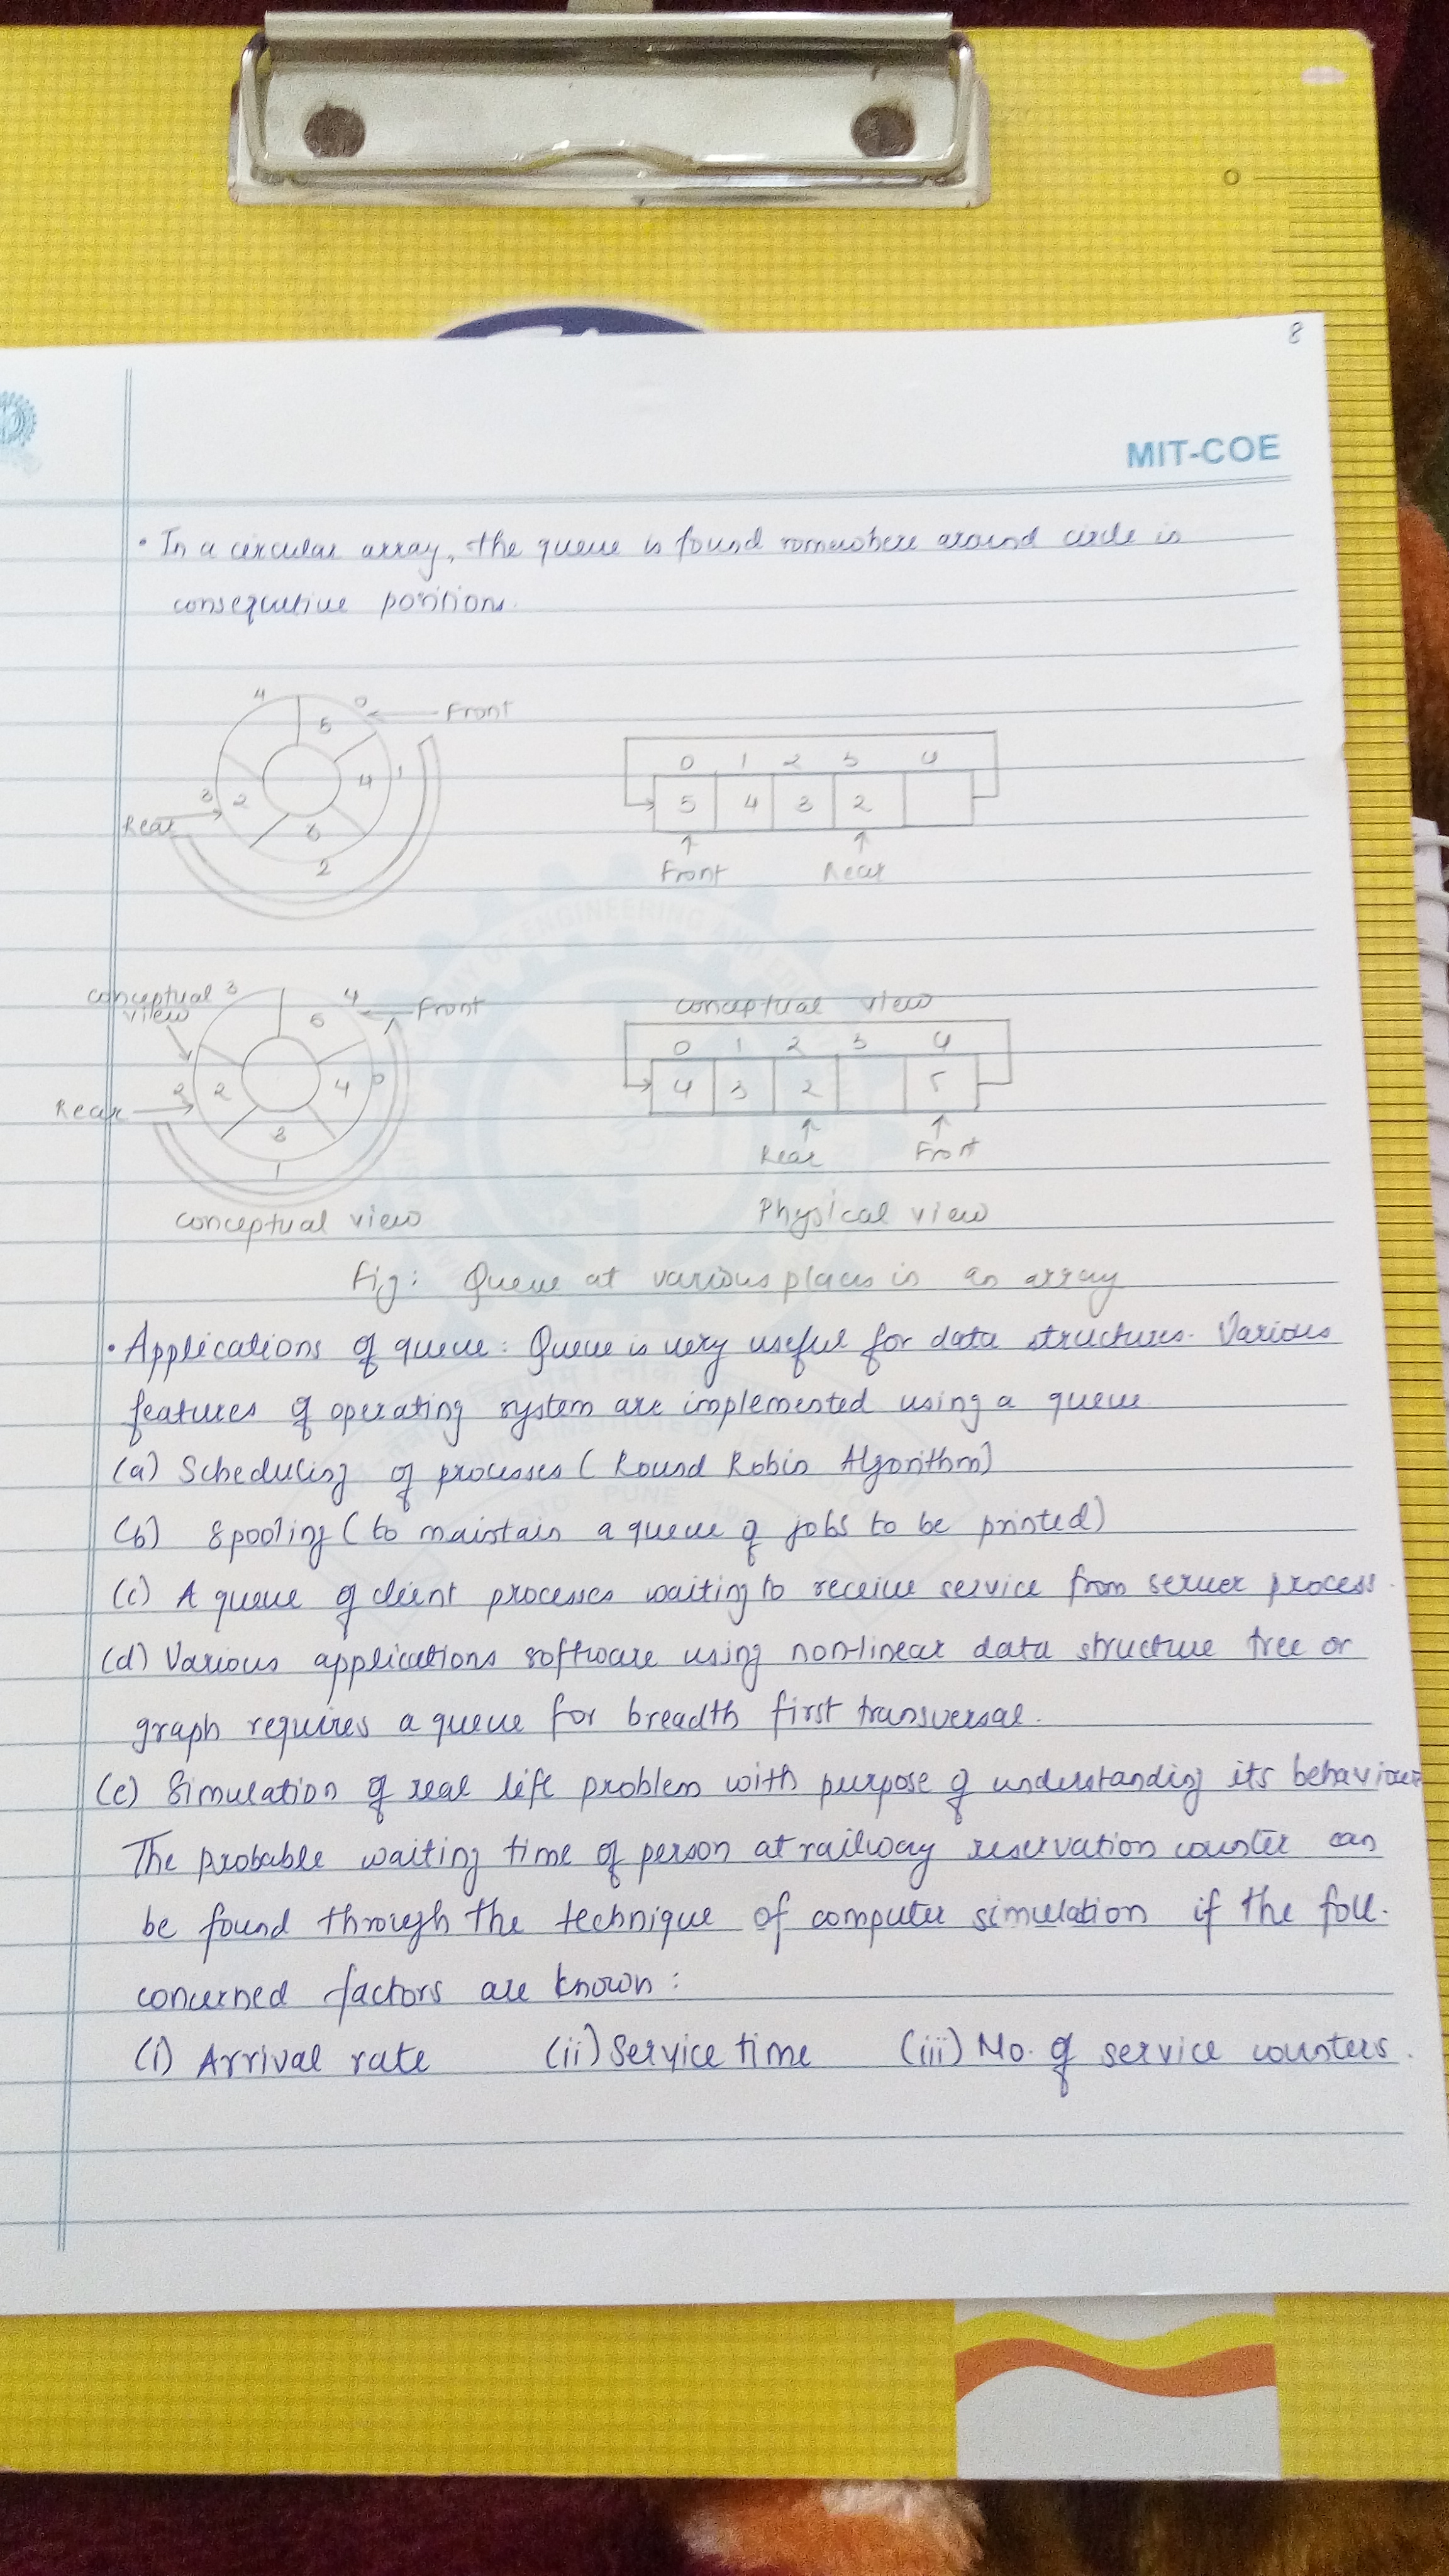 8
MIT-COE
• In a circular array, the queue is found somewhere around circle in
consequtive positions.
4 0 ← Front
5
4 1
3 2
Rear
3
2
0 1 2 3 4
5 4 3 2
Front Rear
conceptual 3 4 ← Front
view
5
2 2 4 0
Rear
3
1
conceptual view
conceptual view
0 1 2 3 4
4 3 2 5
Rear Front
Physical view
Fig: Queue at various places in an array
• Applications of queue: Queue is very useful for data structures. Various
features of operating system are implemented using a queue
(a) Scheduling of processes (Round Robin Algorithm)
(b) Spooling (to maintain a queue of jobs to be printed)
(c) A queue of client processes waiting to receive service from server process.
(d) Various applications software using non-linear data structure tree or
graph requires a queue for breadth first transversal.
(e) Simulation of real life problem with purpose of understanding its behaviour
The probable waiting time of person at railway reservation counter can
be found through the technique of computer simulation if the foll.
concerned factors are known:
(i) Arrival rate (ii) Service time (iii) No. of service counters.